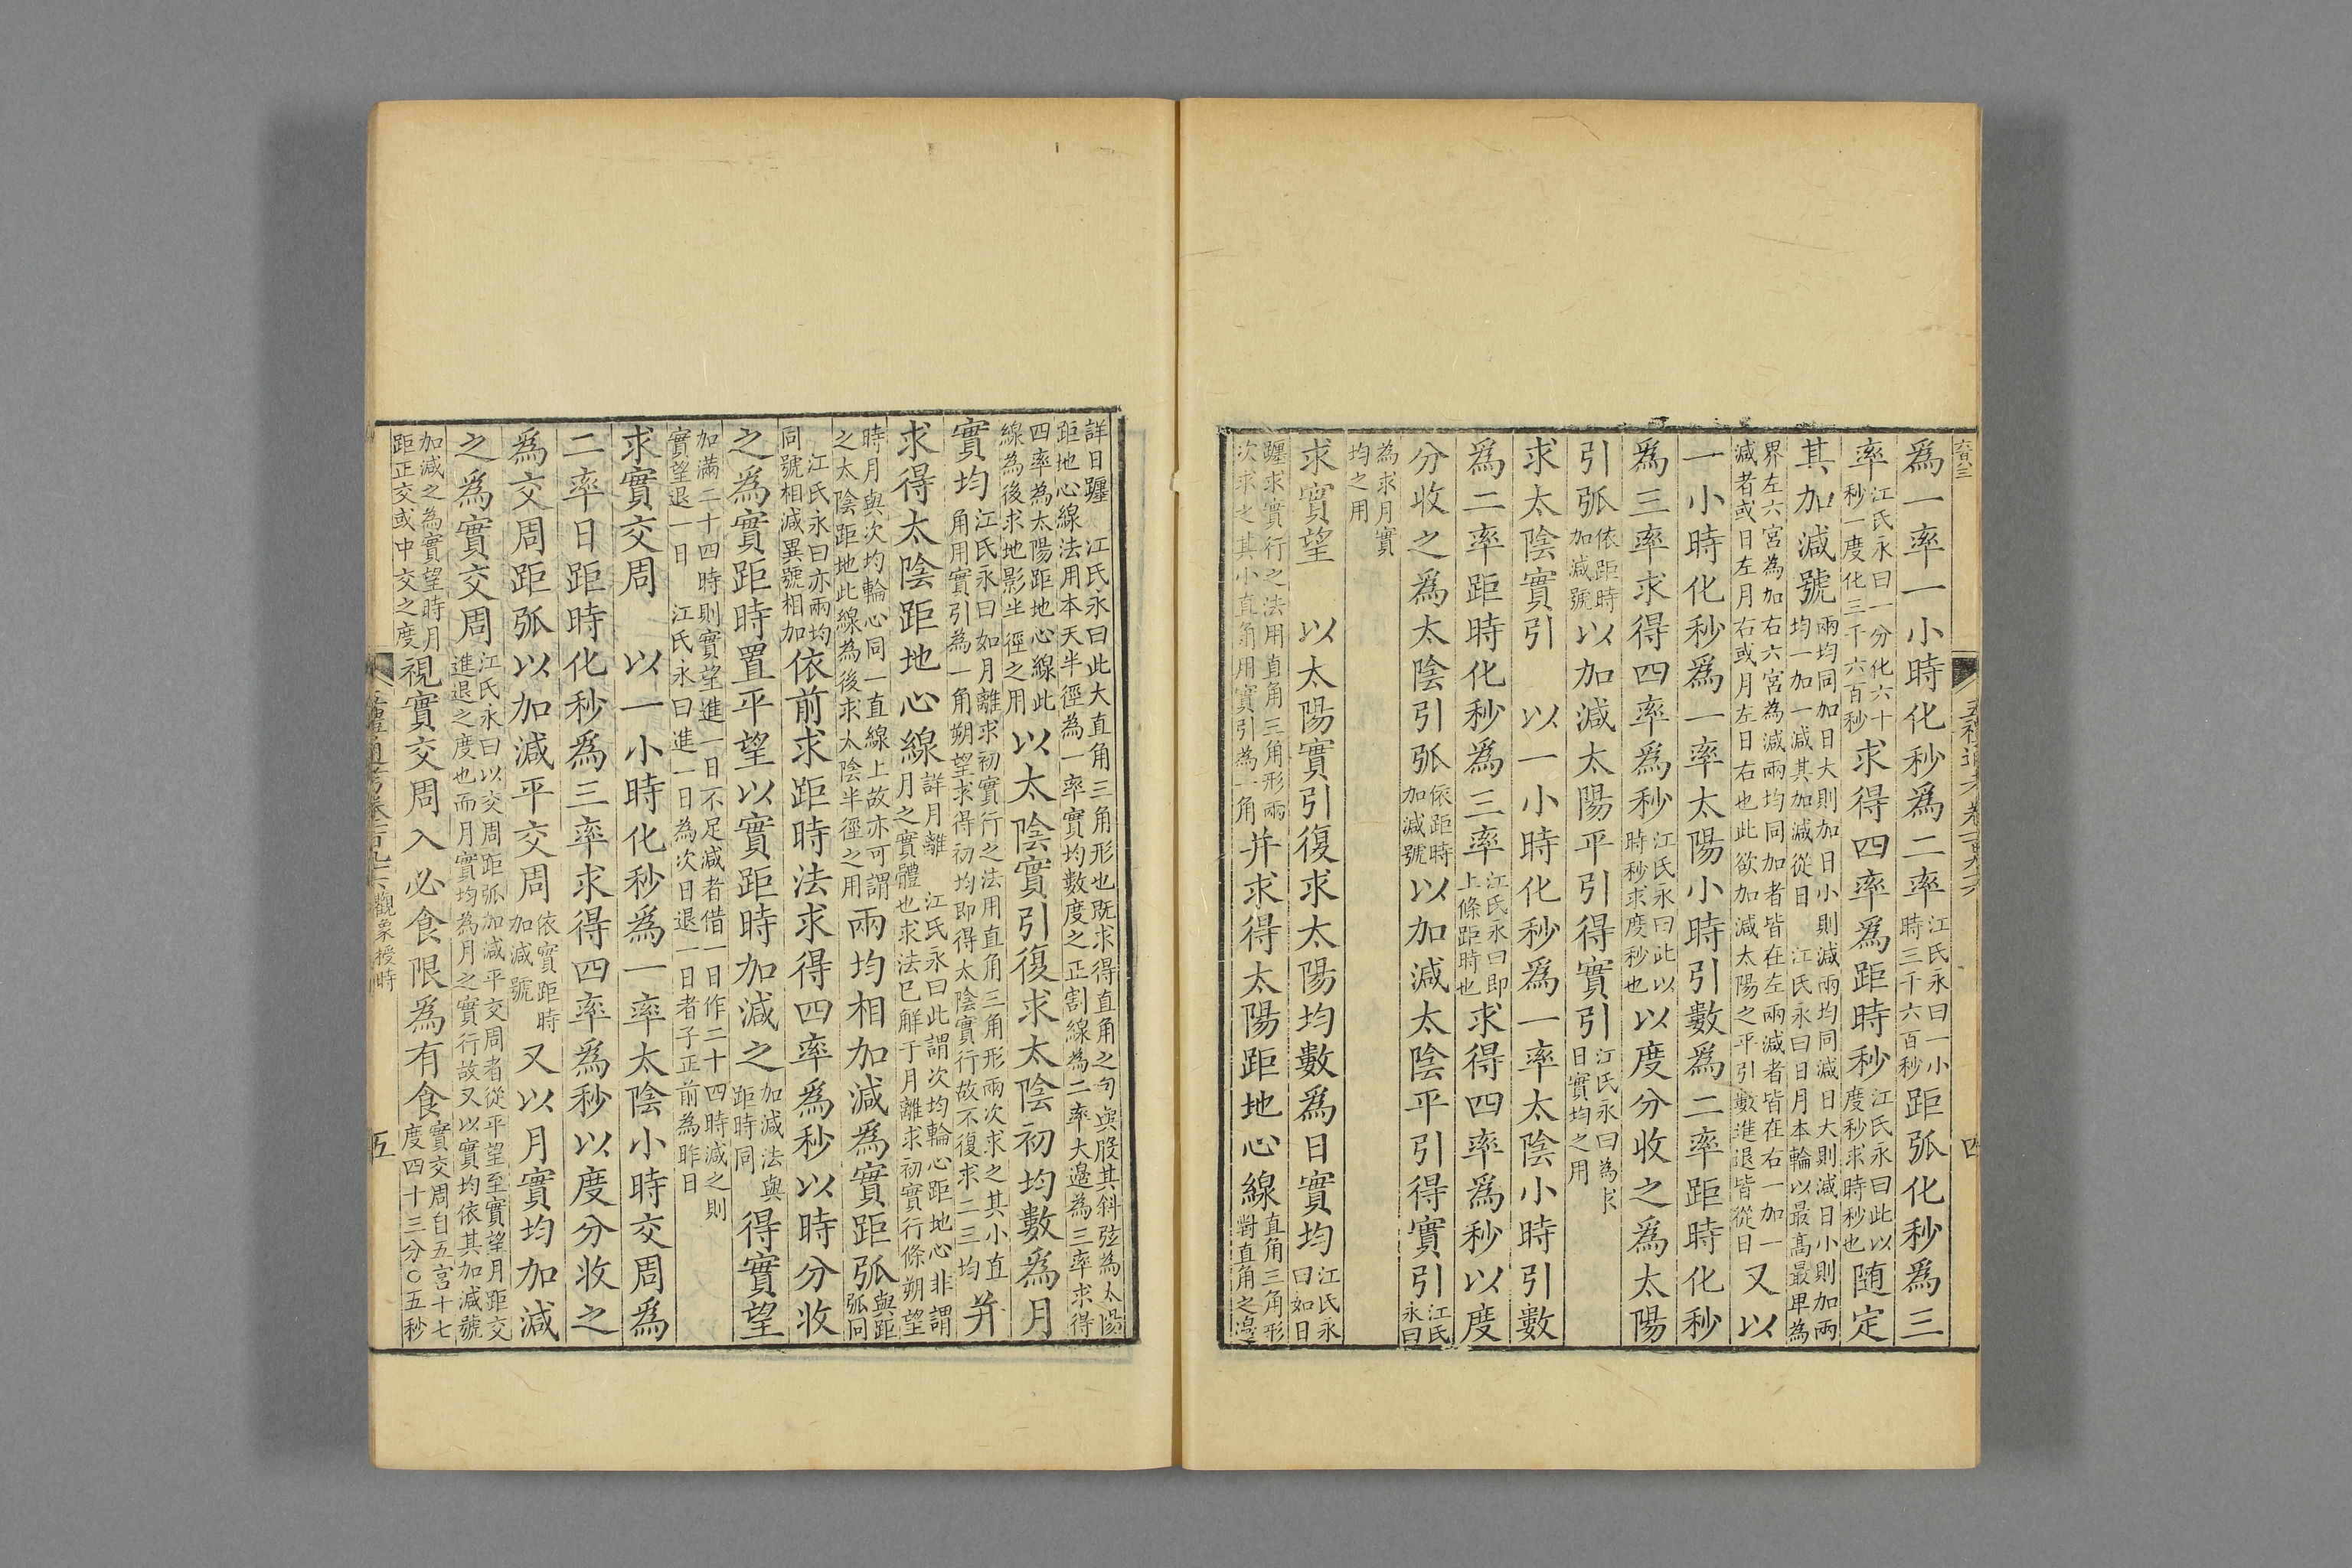 為一率一小時化秒為二率江氏永曰一小時三千六百秒距弧化秒為三
率江氏永曰一分化六十秒一度化三千六百秒求得四率為距時秒江氏永曰此以度秒求時秒也随定
其加減號兩均同加日大則加日小則減兩均同減日大則減日小則加兩均一加一減其加減從日　江氏永曰日月本輪以最高最卑為
界左六宮為加右六宮為減兩均同加者皆在左兩減者皆在右一加一減者或日左月右或月左日右也此欲加減太陽之平引數進退皆從日又以
一小時化秒為一率太陽小時引數為二率距時化秒
為三率求得四率為秒江氏永曰此以時秒求度秒也以度分收之為太陽
引弧依距時加減號以加減太陽平引得實引江氏永曰為求日實均之用
求太陰實引　以一小時化秒為一率太陰小時引數
為二率距時化秒為三率江氏永曰即上條距時也求得四率為秒以度
分收之為太陰引弧依距時加減號以加減太陰平引得實引江氏永曰
為求月實均之用
求實望　以太陽實引復求太陽均數為日實均江氏永曰如日
躔求實行之法用直角三角形兩次求之其小直角用實引為一角并求得太陽距地心線直角三角形對直角之邊
詳日躔　江氏永曰此大直角三角形也既求得直角之句與股其斜弦為太陽距地心線法用本天半徑為一率實均數度之正割線為二率大邊為三率求得
四率為太陽距地心線此線為後求地影半徑之用以太陰實引復求太陰初均數為月
實均江氏永曰如月離求初實行之法用直角三角形兩次求之其小直角用實引為一角朔望求得初均即得太陰實行故不復求二三均并
求得太陰距地心線詳月離　江氏永曰此謂次均輪心距地心非謂月之實體也求法已解于月離求初實行條朔望
時月與次均輪心同一直線上故亦可謂之太陰距地此線為後求太陰半徑之用兩均相加減為實距弧與距弧同
江氏永曰亦兩均同號相減異號相加依前求距時法求得四率為秒以時分收
之為實距時置平望以實距時加減之加減法與距時同得實望
加滿二十四時則實望進一日不足減者借一日作二十四時減之則實望退一日　江氏永曰進一日為次日退一日者子正前為昨日
求實交周　以一小時化秒為一率太陰小時交周為
二率日距時化秒為三率求得四率為秒以度分收之
為交周距弧以加減平交周依實距時加減號又以月實均加減
之為實交周江氏永曰以交周距弧加減平交周者從平望至實望月距交進退之度也而月實均為月之實行故又以實均依其加減號
加減之為實望時月距正交或中交之度視實交周入必食限為有食實交周自五宮十七度四十三分〇五秒
觀象授時
五